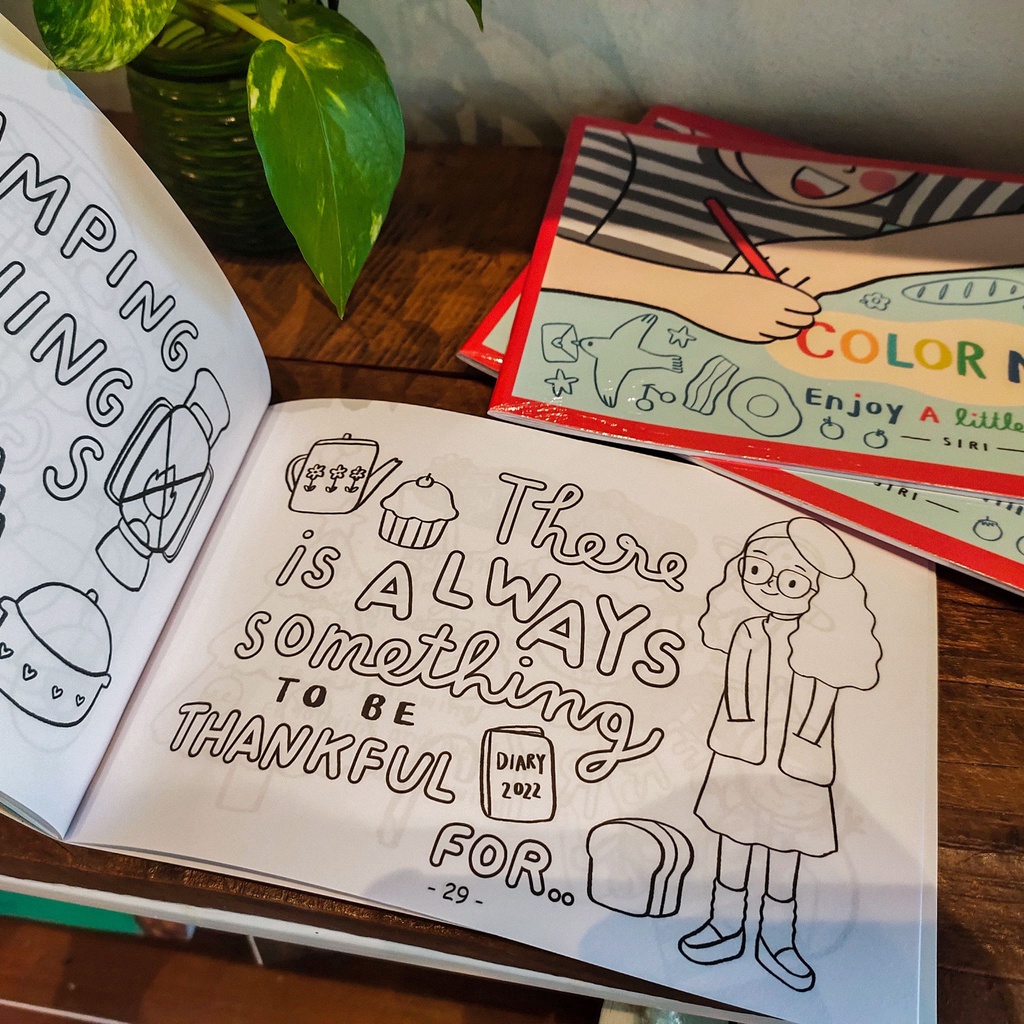 MPING
INGS
There
is ALWAYS
something
TO BE
THANKFUL
DIARY
2022
FOR..
- 29 -
COLOR
Enjoy A little
— SIRI —